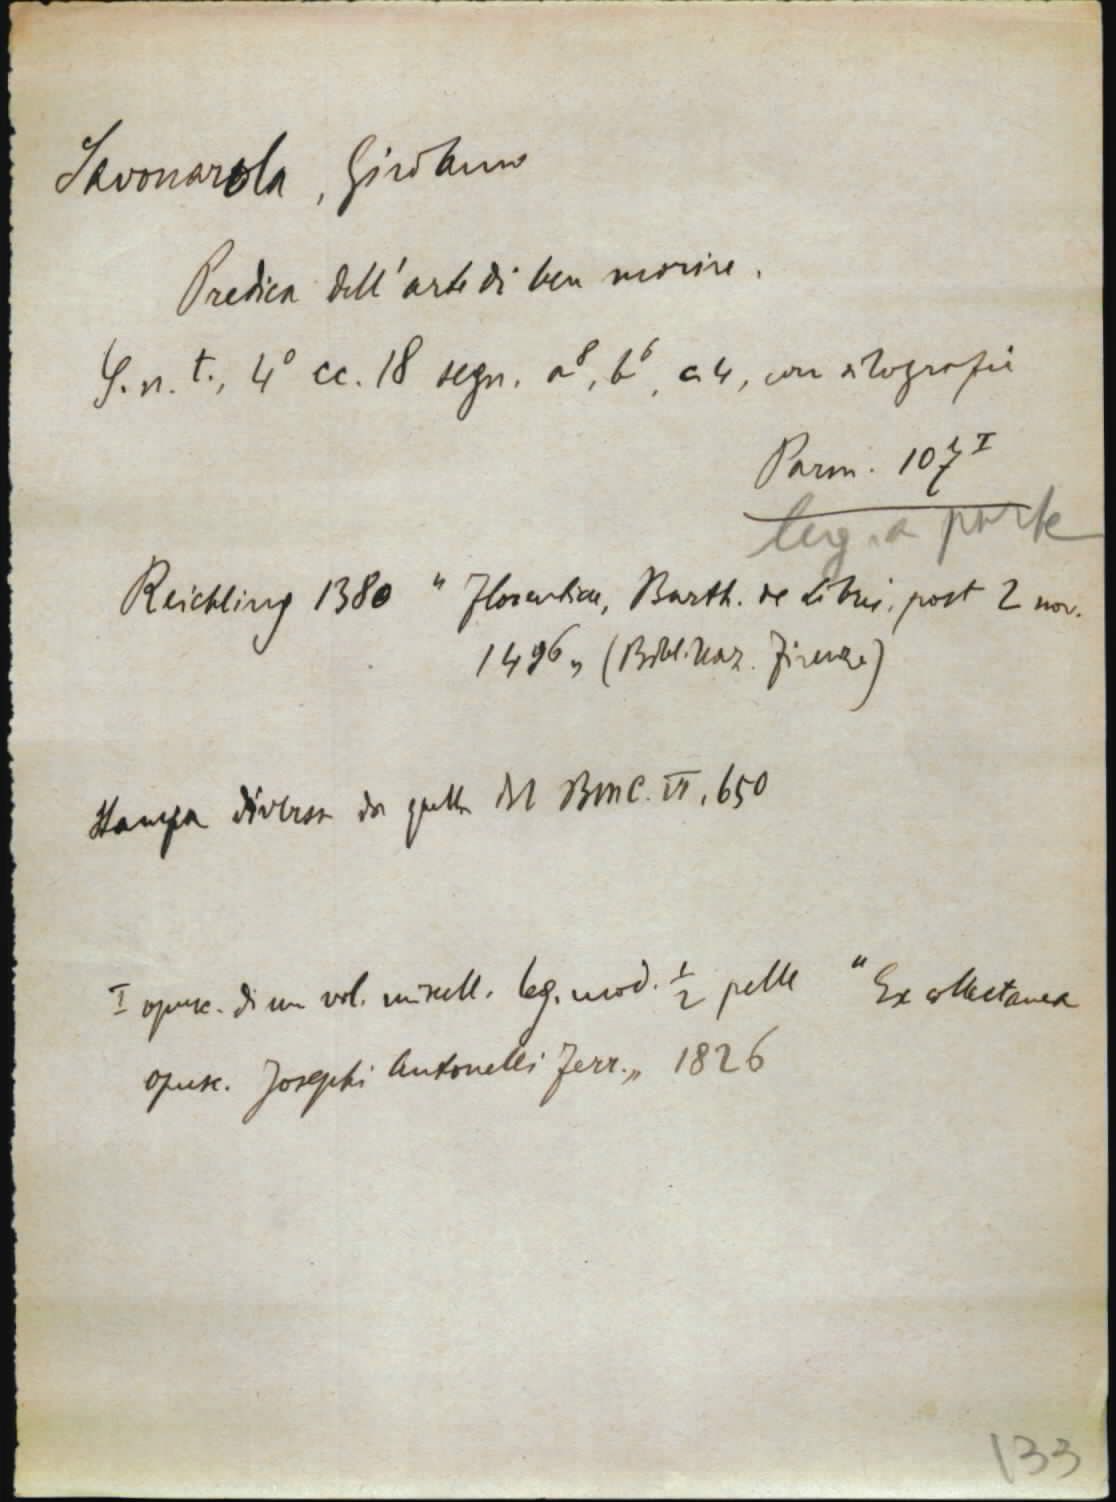 Savonarola, Girolamo
Predica dell'arte di ben morire.
S. n. t., 4° cc. 18 segn. a⁸, b⁶, c4, con xilografie
Parm. 107 I
leg. a parte
Reichling 1380 "Florentiae, Barth. de Libris, post 2 nov.
1496„ (Bibl. Naz. Firenze)
Stampa diversa da quella del BMC. VI, 650
I opusc. di un vol. miscell. leg. mod. ½ pelle "Ex collectanea
opusc. Josephi Antonelli Ferr.„ 1826
133